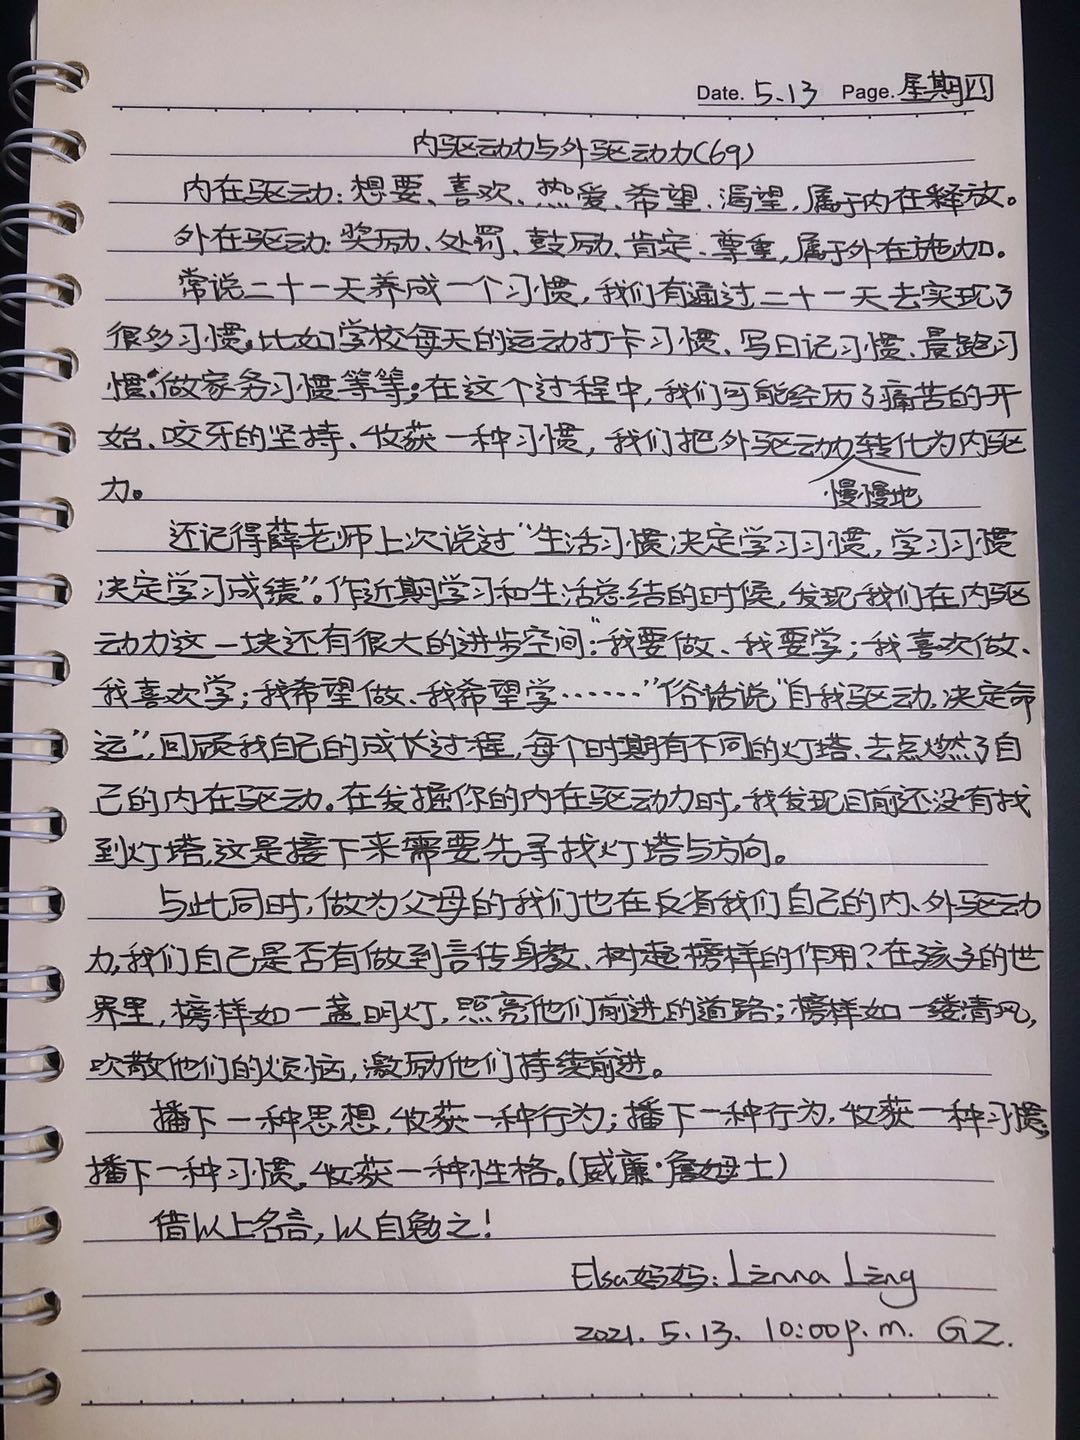 Date. 5.13 Page. 星期四
内驱动力与外驱动力(69)
内在驱动:想要、喜欢、热爱、希望、渴望,属于内在释放。
外在驱动:奖励、处罚、鼓励、肯定、尊重,属于外在施加。
常说二十一天养成一个习惯,我们有通过二十一天去实现了
很多习惯,比如学校每天的运动打卡习惯、写日记习惯、晨跑习
惯、做家务习惯等等;在这个过程中,我们可能经历了痛苦的开
始、咬牙的坚持、收获一种习惯,我们把外驱动力转化为内驱
力。
慢慢地
还记得薛老师上次说过“生活习惯决定学习习惯,学习习惯
决定学习成绩”。作近期学习和生活总结的时候,发现我们在内驱
动力这一块还有很大的进步空间:“我要做、我要学;我喜欢做、
我喜欢学;我希望做、我希望学……”俗话说“自我驱动,决定命
运”,回顾我自己的成长过程,每个时期有不同的灯塔、去点燃了自
己的内在驱动。在发掘你的内在驱动力时,我发现目前还没有找
到灯塔,这是接下来需要先寻找灯塔与方向。
与此同时,做为父母的我们也在反省我们自己的内、外驱动
力,我们自己是否有做到言传身教、树起榜样的作用?在孩子的世
界里,榜样如一盏明灯,照亮他们前进的道路;榜样如一缕清风,
吹散他们的烦恼,激励他们持续前进。
播下一种思想,收获一种行为;播下一种行为,收获一种习惯;
播下一种习惯,收获一种性格。(威廉·詹姆士)
借以上名言,以自勉之!
Elsa妈妈: Linna Ling
2021. 5.13. 10:00p.m. GZ.